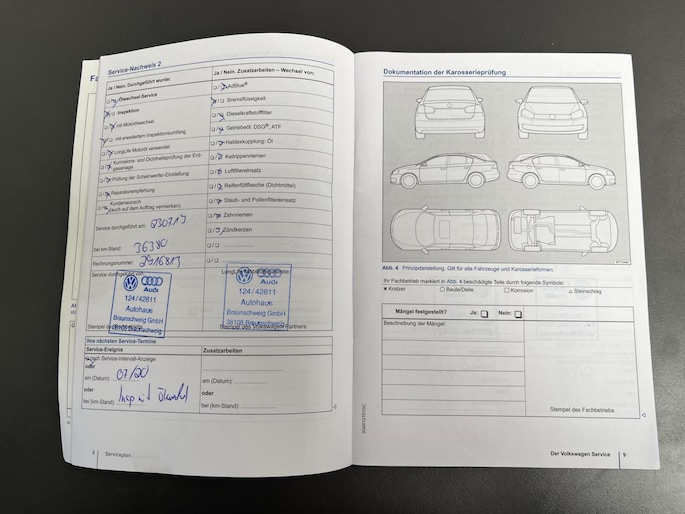 Service-Nachweis 2
Ja / Nein. Durchgeführt wurde:
Ölwechsel-Service
Inspektion
mit Motorölwechsel
mit erweitertem Inspektionsumfang
LongLife Motoröl verwendet
Korrosions- und Dichtheitsprüfung der Erdgasanlage
Prüfung der Scheinwerfer-Einstellung
Reparaturempfehlung
Kundenwunsch
(auch auf dem Auftrag vermerken)
Service durchgeführt am: 230719
bei km-Stand: 36380
Rechnungsnummer: 2916813
Service durchgeführt von:
Audi
124/42811
Autohaus
Braunschweig GmbH
38108 Braunschweig
Ja / Nein. Zusatzarbeiten – Wechsel von:
AdBlue®
Bremsflüssigkeit
Dieselkraftstofffilter
Getriebeöl, DSG®, ATF
Haldexkupplung: Öl
Keilrippenriemen
Luftfiltereinsatz
Reifenfüllflasche (Dichtmittel)
Staub- und Pollenfiltereinsatz
Zahnriemen
Zündkerzen
Audi
124/42811
Autohaus
Braunschweig GmbH
38108 Braunschweig
Stempel des Volkswagen Partners
Ihre nächsten Service-Termine
Service-Ereignis
Zusatzarbeiten
nach Service-Intervall-Anzeige
oder
am (Datum): 07/20
am (Datum):
oder
oder
bei (km-Stand): Insp mit Ölwechsel
bei (km-Stand):
8 Serviceplan
Dokumentation der Karosserieprüfung
Abb. 4 Prinzipdarstellung. Gilt für alle Fahrzeuge und Karosserieformen.
Ihr Fachbetrieb markiert in Abb. 4 beschädigte Teile durch folgende Symbole:
× Kratzer ○ Beule/Delle □ Korrosion △ Steinschlag
Mängel festgestellt? Ja: Nein:
Beschreibung der Mängel:
Stempel des Fachbetriebs
Der Volkswagen Service 9